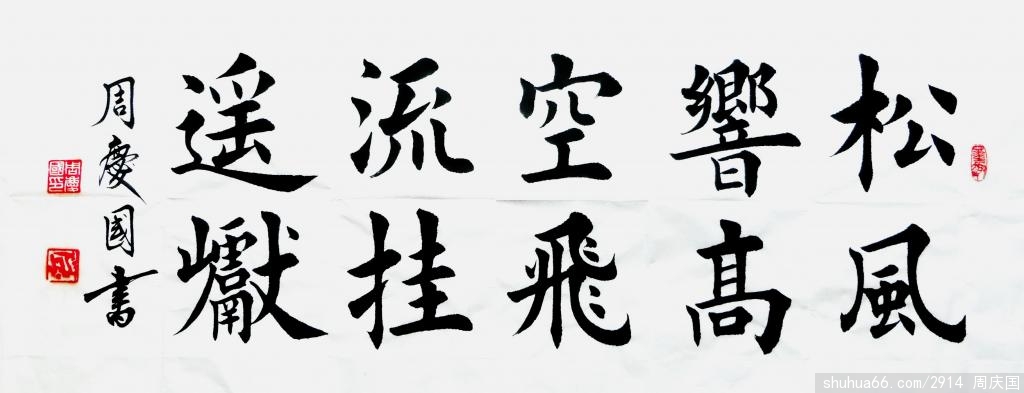 松風
響高
空飛
流挂
遥巘
周慶國書
周慶國印
shuhua66.com/2914 周庆国